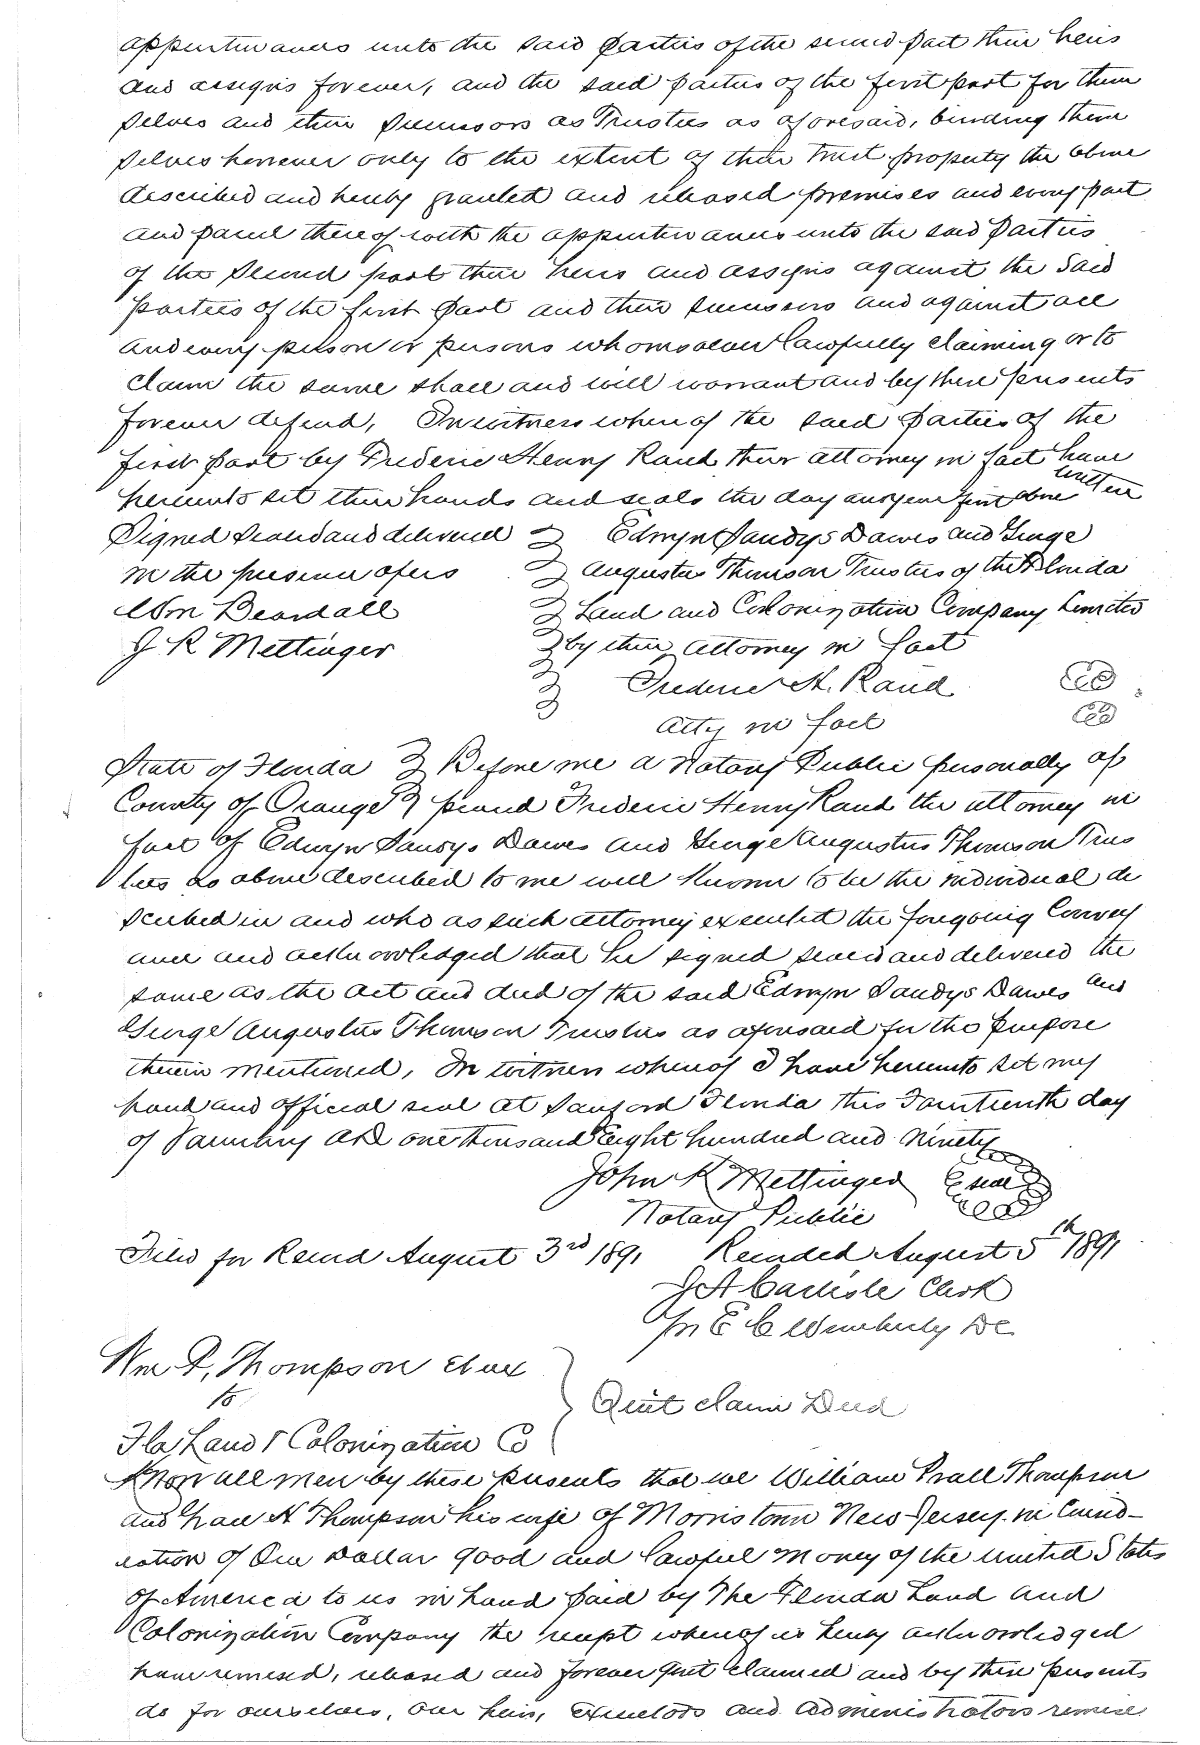 appurtenances unto the said parties of the second part their heirs
and assigns forever, and the said parties of the first part for them
selves and their successors as Trustees as aforesaid, binding them
selves however only to the extent of their trust property the above
described and hereby granted and released premises and every part
and parcel thereof with the appurtenances unto the said parties
of the second part their heirs and assigns against the said
parties of the first part and their successors and against all
and every person or persons whomsoever lawfully claiming or to
claim the same shall and will warrant and by these presents
forever defend, In witness whereof the said parties of the
first part by Frederic Henry Rand their attorney in fact have
hereunto set their hands and seals the day and year first above written
Signed sealed and delivered Edwyn Sandys Dawes and George
in the presence of us Augustus Thomson Trustees of the Florida
Wm Beardall Land and Colonization Company Limited
J R Mettinger by their attorney in fact
Frederic H. Rand
Atty in fact
State of Florida Before me a Notary Public personally ap
County of Orange peared Frederic Henry Rand the attorney in
fact of Edwyn Sandys Dawes and George Augustus Thomson Trus
tees as above described to me well known to be the individual de
scribed in and who as such attorney executed the foregoing convey
ance and acknowledged that he signed sealed and delivered the
same as the act and deed of the said Edwyn Sandys Dawes and
George Augustus Thomson Trustees as aforesaid for the purpose
therein mentioned, In witness whereof I have hereunto set my
hand and official seal at Sanford Florida this Fourteenth day
of January AD one thousand Eight hundred and ninety
John R Mettinger seal
Notary Public
Filed for Record August 3rd 1891 Recorded August 5th 1891
J A Carlisle Clerk
Pr E C Wimberly DC
Wm P, Thompson et ux
to
Quit claim Deed
Fla Land & Colonization Co
Know all men by these presents that we William Prall Thompson
and Grace N Thompson his wife of Morristown New Jersey in consid-
eration of One Dollar good and lawful money of the United States
of America to us in hand paid by The Florida Land and
Colonization Company the receipt whereof is hereby acknowledged
have remised, released and forever quit claimed and by these presents
do for ourselves, our heirs, executors and administrators remise